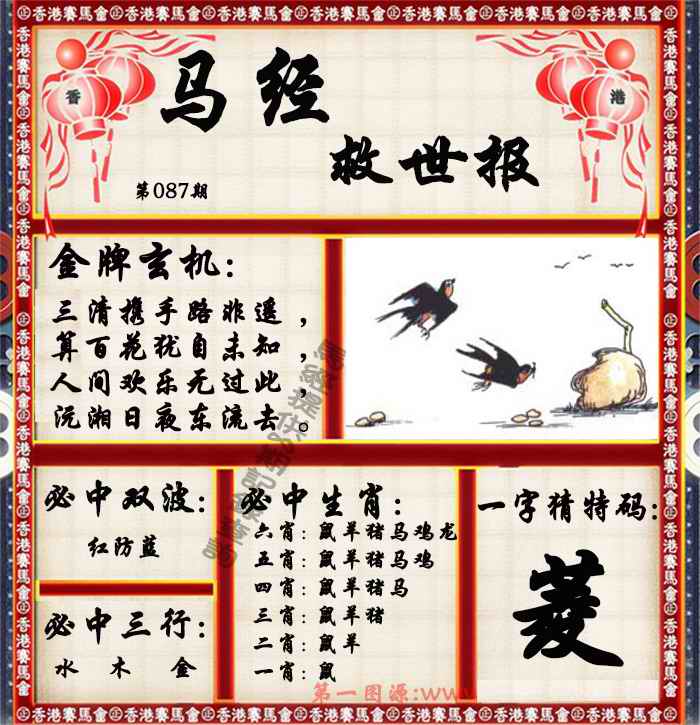 香港賽馬會
香 港
马经
救世报
第087期
金牌玄机:
三清携手路非遥，
算百花犹自未知，
人间欢乐无过此，
沅湘日夜东流去。
必中双波:
红防蓝
必中三行:
水 木 金
必中生肖:
六肖:鼠羊猪马鸡龙
五肖:鼠羊猪马鸡
四肖:鼠羊猪马
三肖:鼠羊猪
二肖:鼠羊
一肖:鼠
一字猜特码:
菱
第一图源:www